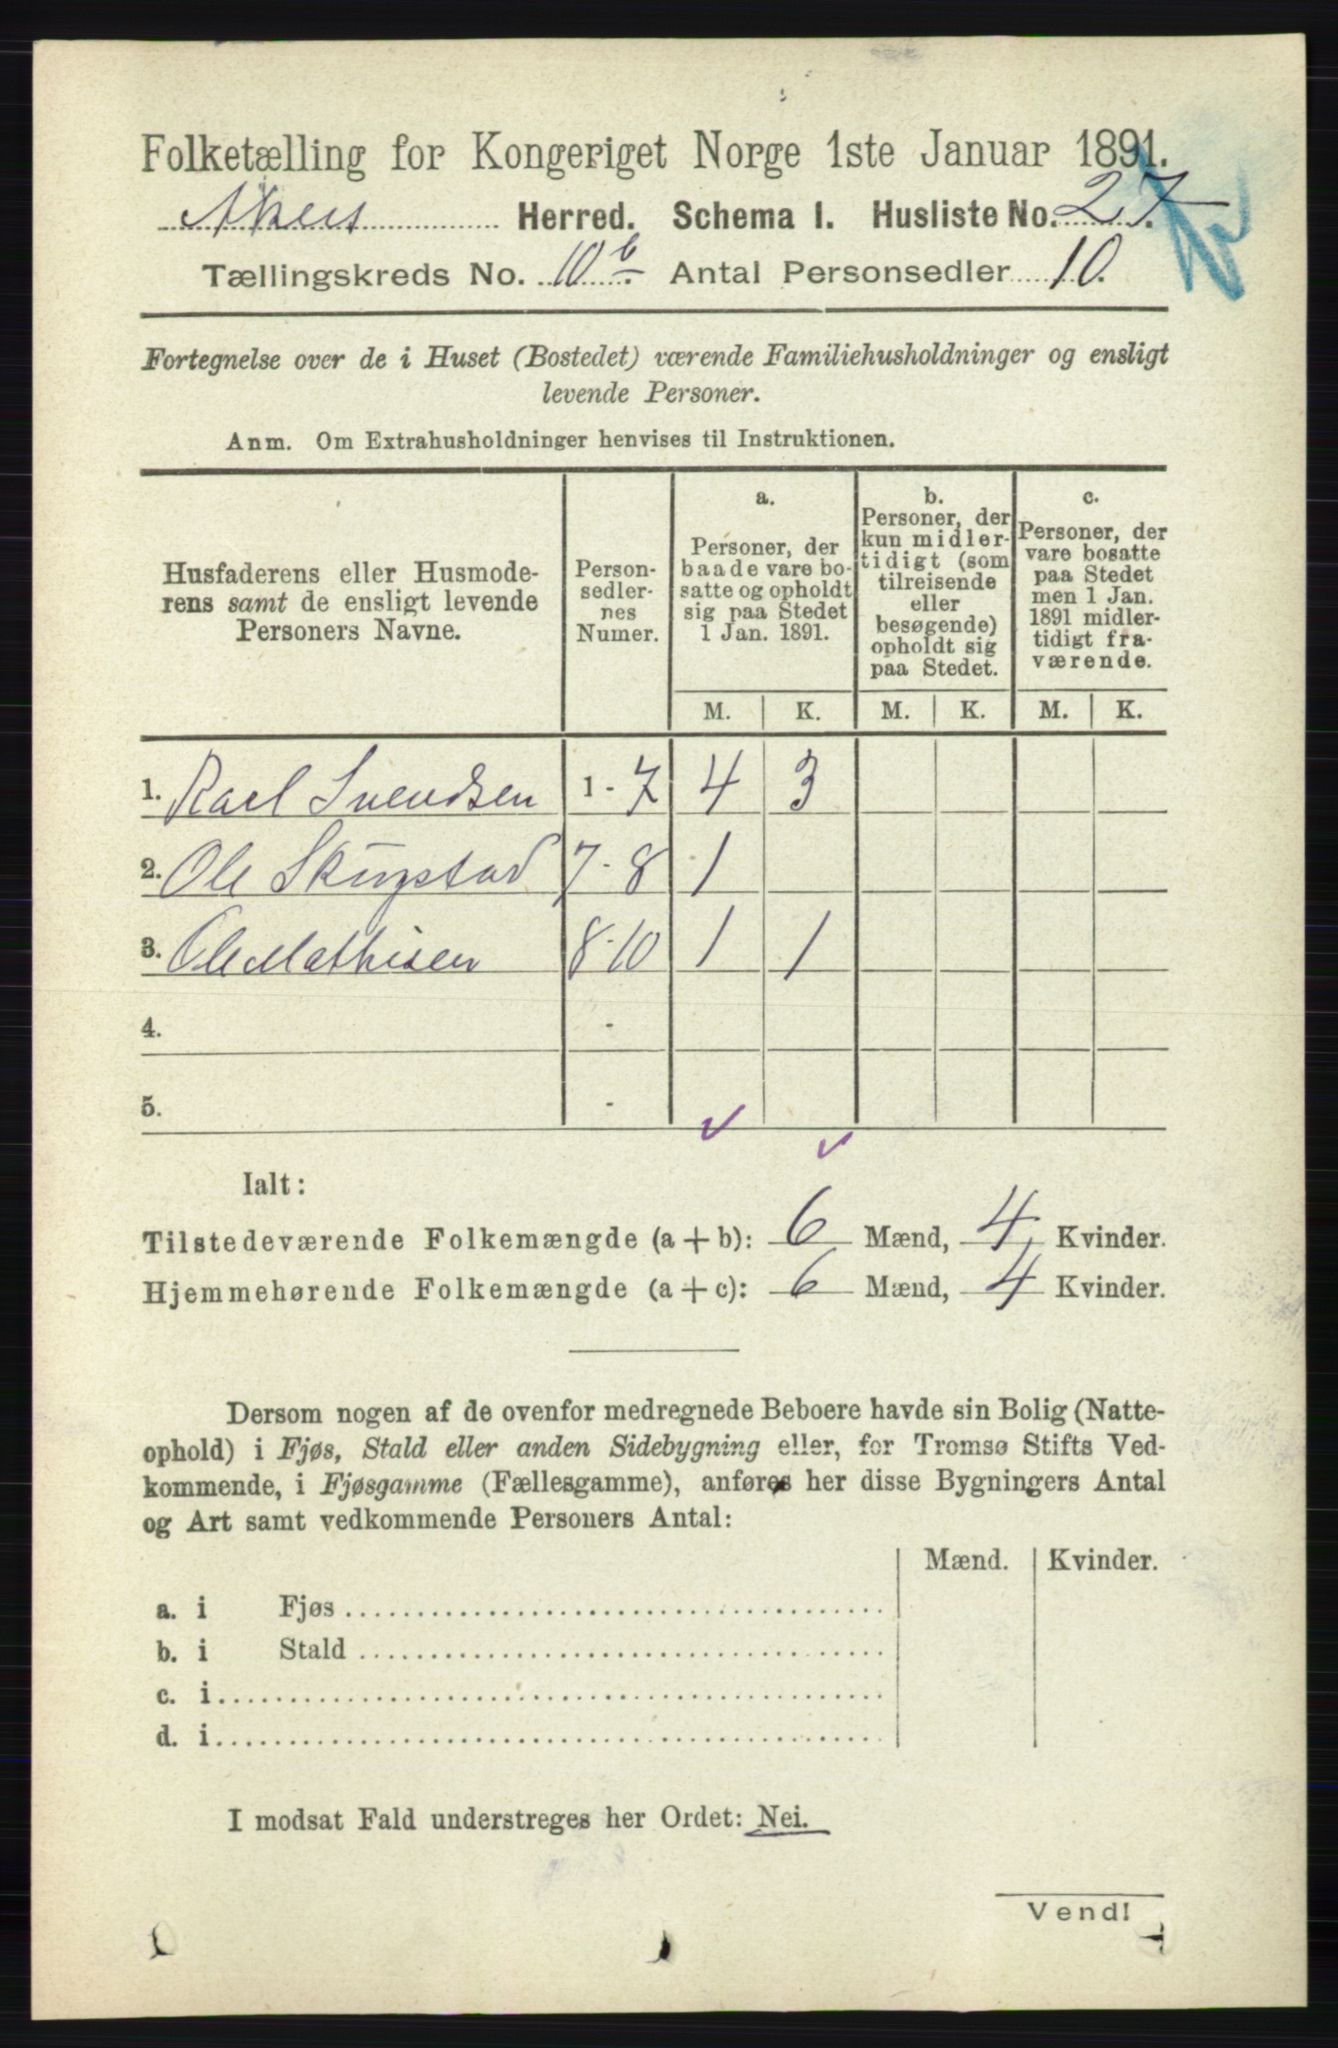 Folketælling for Kongeriget Norge 1ste Januar 1891.
Akers Herred. Schema I. Husliste No. 27.
Tællingskreds No. 10 b. Antal Personsedler 10.
Fortegnelse over de i Huset (Bostedet) værende Familiehusholdninger og ensligt
levende Personer.
Anm. Om Extrahusholdninger henvises til Instruktionen.
Husfaderens eller Husmode-
rens samt de ensligt levende
Personers Navne.
Person-
sedler-
nes
Numer.
a.
Personer, der
baade vare bo-
satte og opholdt
sig paa Stedet
1 Jan. 1891.
b.
Personer, der
kun midler-
tidigt (som
tilreisende
eller
besøgende)
opholdt sig
paa Stedet.
c.
Personer, der
vare bosatte
paa Stedet
men 1 Jan.
1891 midler-
tidigt fra-
værende.
M. K. M. K. M. K.
1. Karl Svendsen 1 - 7 4 3
2. Ole 7 - 8 1
3. Ole Mathisen 8 - 10 1 1
4. -
5. -
Ialt:
Tilstedeværende Folkemængde (a + b): 6 Mænd, 4 Kvinder.
Hjemmehørende Folkemængde (a + c): 6 Mænd, 4 Kvinder.
Dersom nogen af de ovenfor medregnede Beboere havde sin Bolig (Natte-
ophold) i Fjøs, Stald eller anden Sidebygning eller, for Tromsø Stifts Ved-
kommende, i Fjøsgamme (Fællesgamme), anføres her disse Bygningers Antal
og Art samt vedkommende Personers Antal:
Mænd. Kvinder.
a. i Fjøs
b. i Stald
c. i
d. i
I modsat Fald understreges her Ordet: Nei.
Vend!